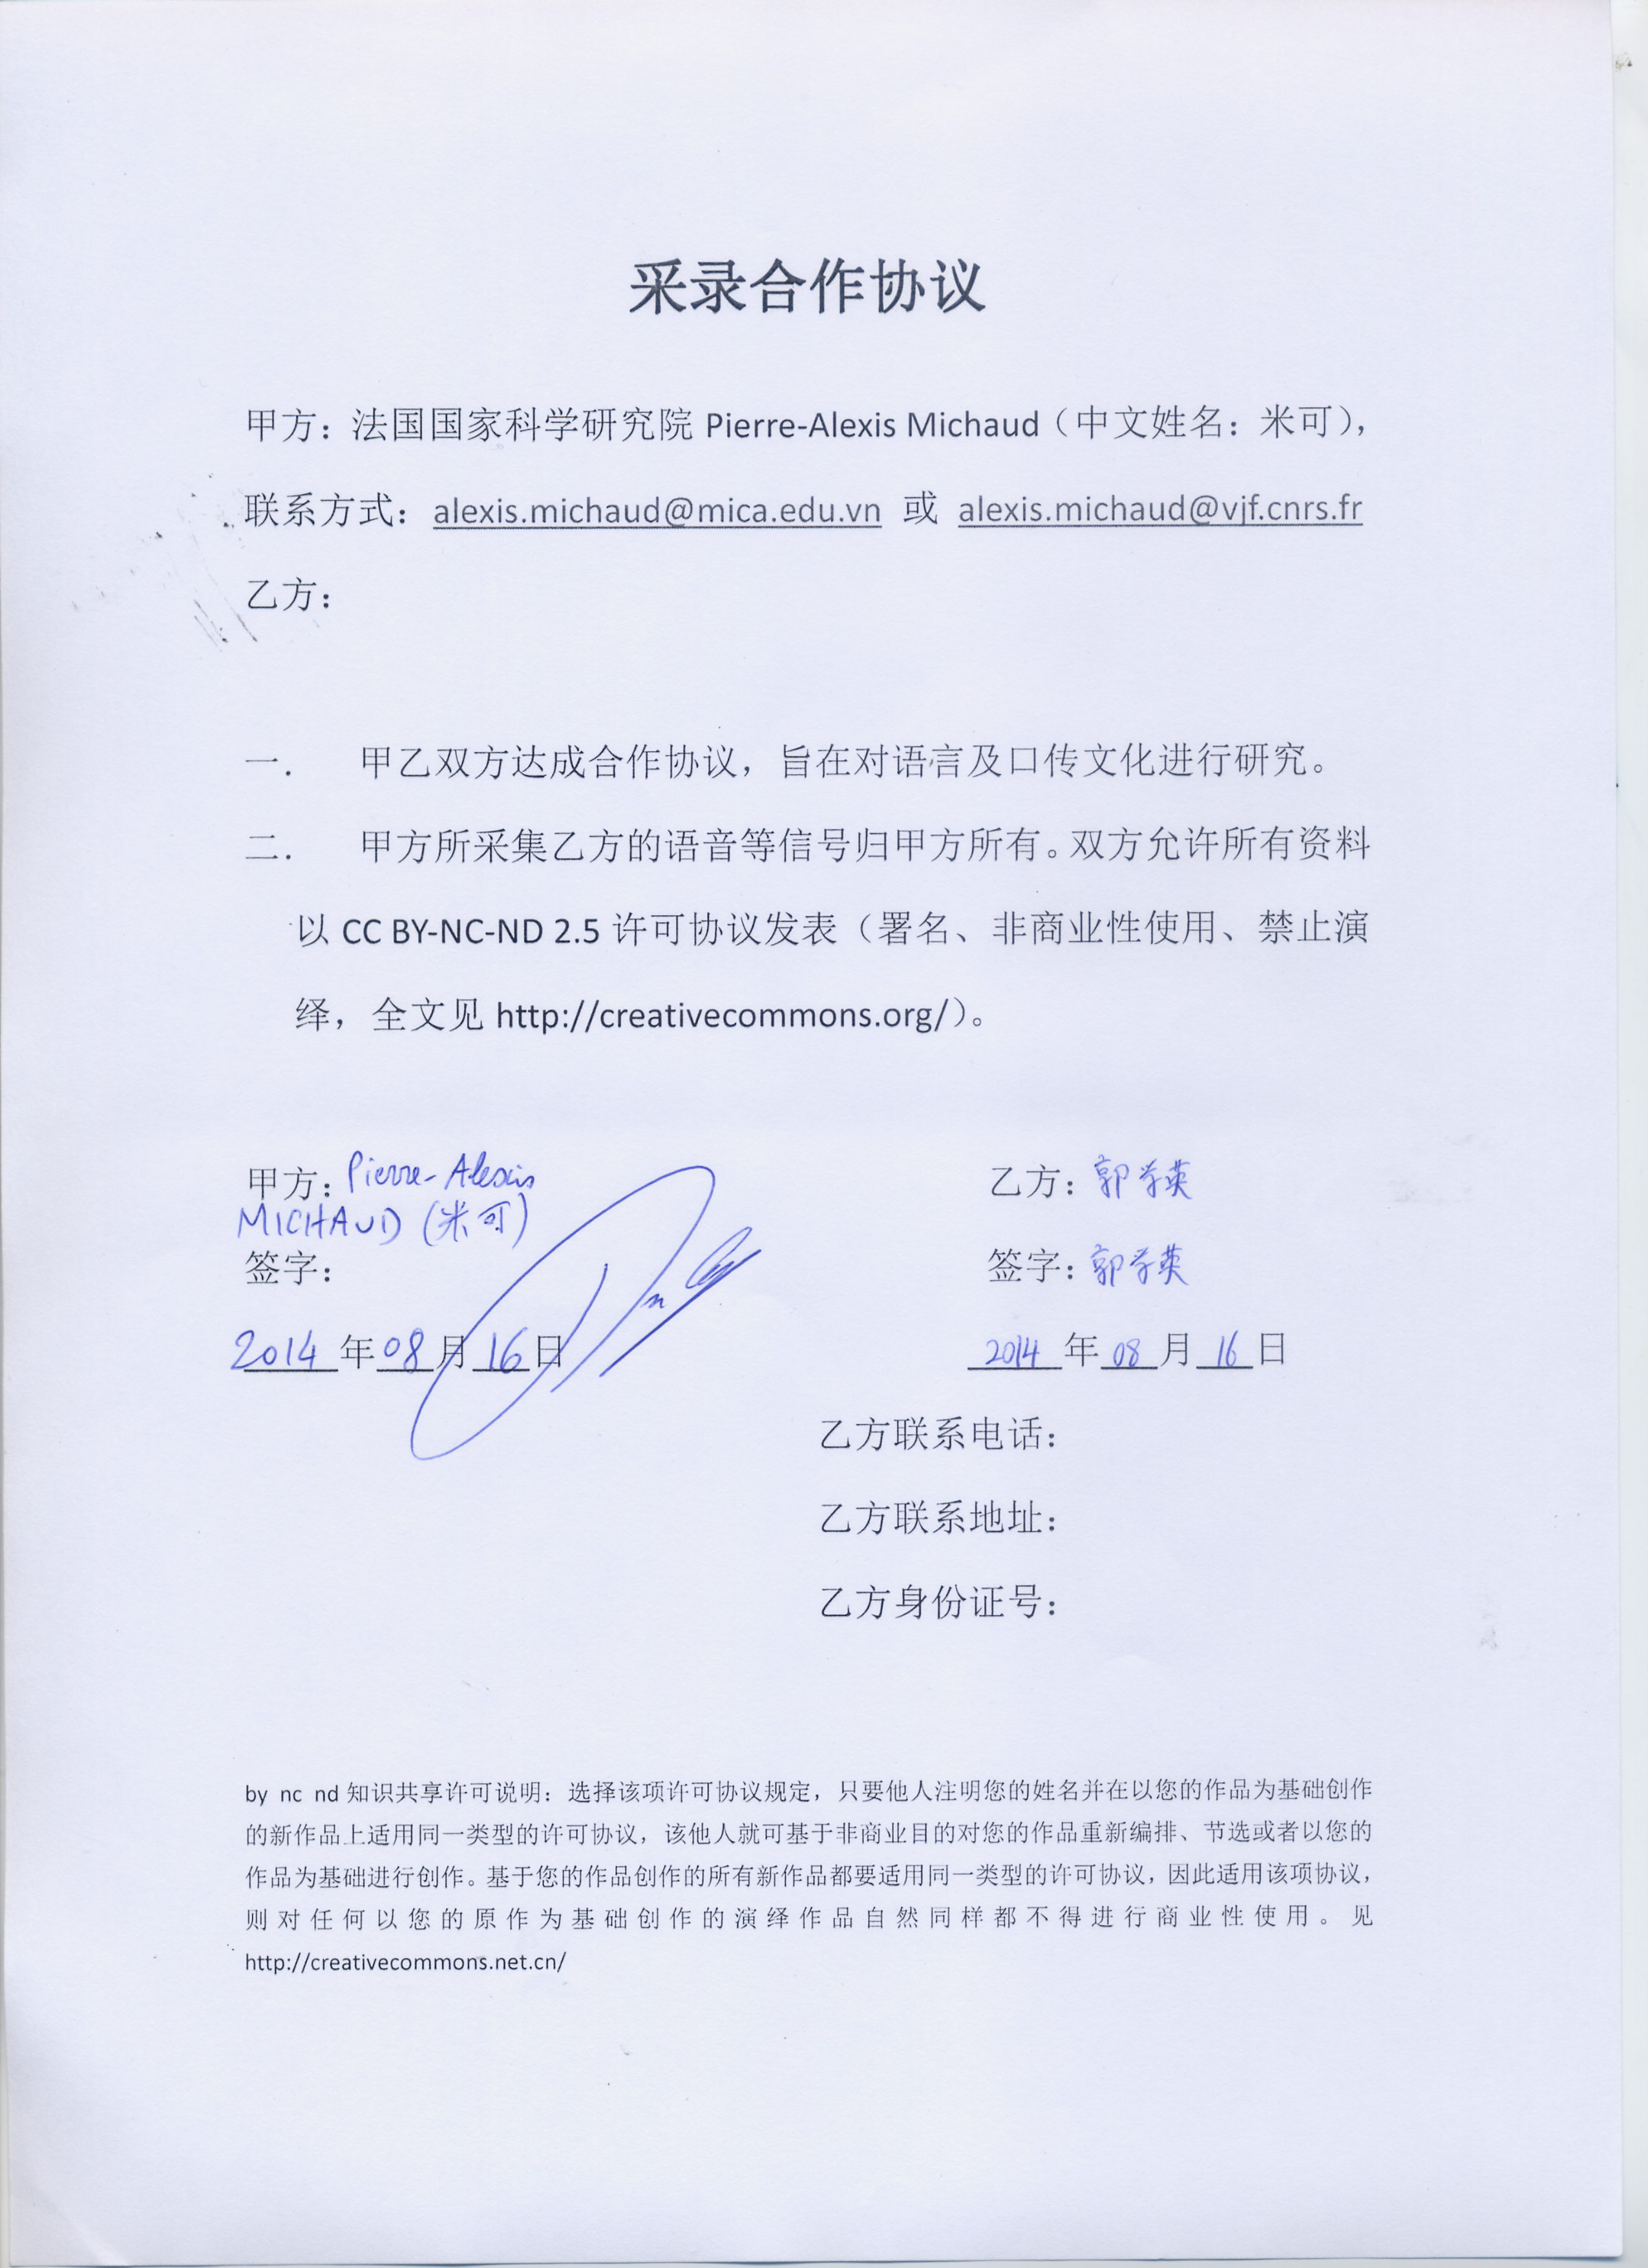 采录合作协议
甲方：法国国家科学研究院 Pierre-Alexis Michaud（中文姓名：米可），
联系方式：alexis.michaud@mica.edu.vn 或 alexis.michaud@vjf.cnrs.fr
乙方：
一． 甲乙双方达成合作协议，旨在对语言及口传文化进行研究。
二． 甲方所采集乙方的语音等信号归甲方所有。双方允许所有资料
以 CC BY-NC-ND 2.5 许可协议发表（署名、非商业性使用、禁止演
绎，全文见 http://creativecommons.org/）。
甲方：Pierre-Alexis
MICHAUD (米可)
签字：
2014 年 08 月 16 日
乙方：郭学英
签字：郭学英
2014 年 08 月 16 日
乙方联系电话：
乙方联系地址：
乙方身份证号：
by nc nd 知识共享许可说明：选择该项许可协议规定，只要他人注明您的姓名并在以您的作品为基础创作
的新作品上适用同一类型的许可协议，该他人就可基于非商业目的对您的作品重新编排、节选或者以您的
作品为基础进行创作。基于您的作品创作的所有新作品都要适用同一类型的许可协议，因此适用该项协议，
则对任何以您的原作为基础创作的演绎作品自然同样都不得进行商业性使用。见
http://creativecommons.net.cn/